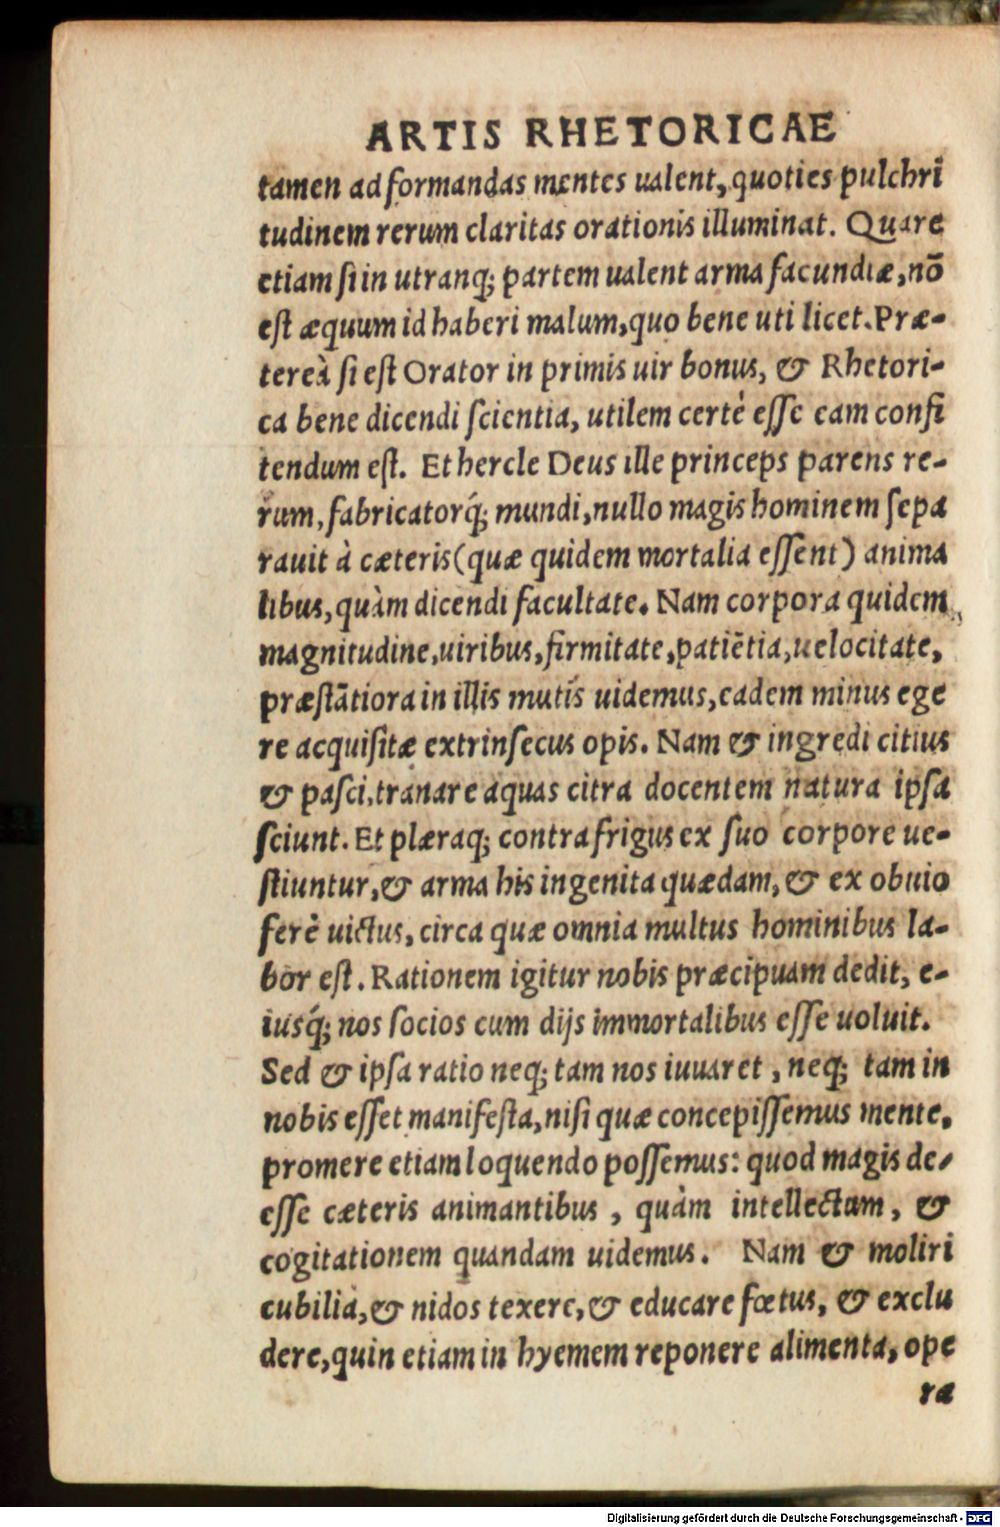 ARTIS RHETORICAE
tamen ad formandas mentes ualent, quoties pulchri
tudinem rerum claritas orationis illuminat. Quare
etiam si in utranq; partem ualent arma facundiæ, nō
est æquum id haberi malum, quo bene uti licet. Præ-
tereà si est Orator in primis uir bonus, & Rhetori-
ca bene dicendi scientia, utilem certè esse eam confi
tendum est. Et hercle Deus ille princeps parens re-
rum, fabricatorq́; mundi, nullo magis hominem sepa
rauit à cæteris (quæ quidem mortalia essent) anima
libus, quàm dicendi facultate. Nam corpora quidem
magnitudine, uiribus, firmitate, patiētia, uelocitate,
præstātiora in illis mutis uidemus, eadem minus ege
re acquisitæ extrinsecus opis. Nam & ingredi citius
& pasci, tranare aquas citra docentem natura ipsa
sciunt. Et plæraq; contra frigus ex suo corpore ue-
stiuntur, & arma his ingenita quædam, & ex obuio
ferè uictus, circa quæ omnia multus hominibus la-
bor est. Rationem igitur nobis præcipuam dedit, e-
iusq́; nos socios cum dijs immortalibus esse uoluit.
Sed & ipsa ratio neq; tam nos iuuaret, neq; tam in
nobis esset manifesta, nisi quæ concepissemus mente,
promere etiam loquendo possemus: quod magis de-
esse cæteris animantibus, quàm intellectum, &
cogitationem quandam uidemus. Nam & moliri
cubilia, & nidos texere, & educare fœtus, & exclu
dere, quin etiam in hyemem reponere alimenta, ope
ra
Digitalisierung gefördert durch die Deutsche Forschungsgemeinschaft - DFG